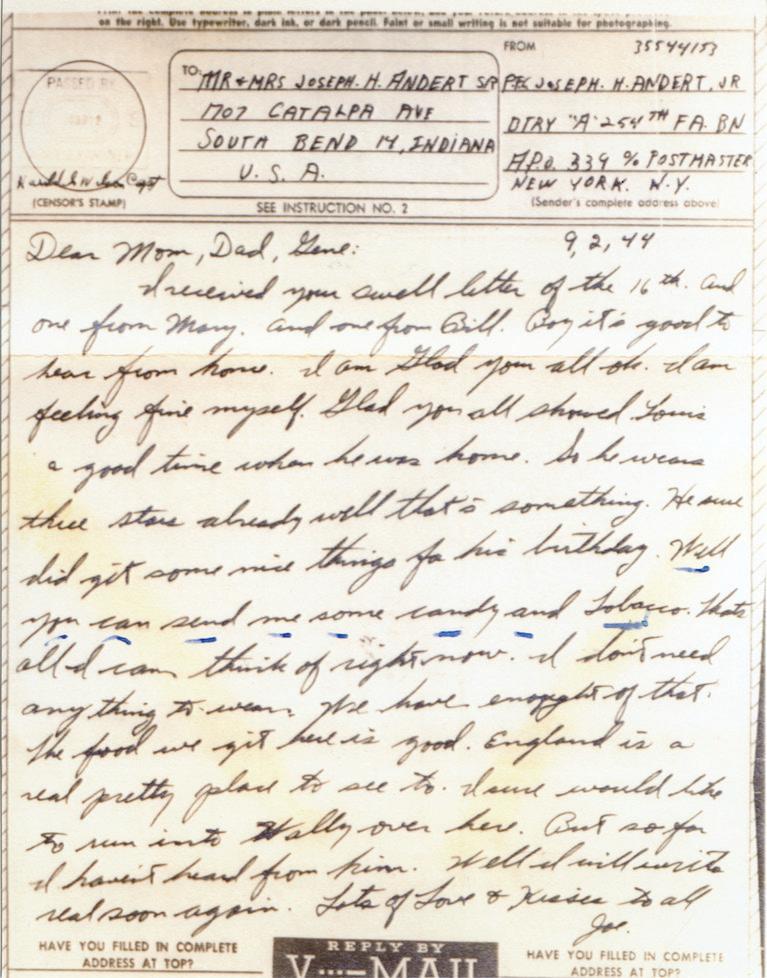 on the right. Use typewriter, dark ink, or dark pencil. Faint or small writing is not suitable for photographing.
PASSED BY
(CENSOR'S STAMP)
TO:
MR & MRS JOSEPH. H. ANDERT SR
1707 CATALPA AVE
SOUTH BEND 14, INDIANA
U. S. A.
SEE INSTRUCTION NO. 2
FROM
35544153
PFC JOSEPH. H. ANDERT, JR
BTRY "A" 254TH F.A. BN
A.P.O. 339 % POSTMASTER
NEW YORK. N.Y.
(Sender's complete address above)
9, 2, 44
Dear Mom, Dad, Gene:
I received your swell letter of the 16th. and
one from Mary. and one from Bill. Boy it's good to
hear from home. I am Glad you all ok. I am
feeling fine myself. Glad you all showed Louis
a good time when he was home. So he wears
three stars already well that's something. He sure
did get some nice things for his birthday. Well
you can send me some candy and Tobacco. Thats
all I can think of right now. I don't need
anything to wear. We have enought of that.
The food we get here is good. England is a
real pretty place to see to. I sure would like
to run into Wally over here. But so far
I haven't heard from him. Well I will write
real soon again. Lots of Love & Kisses to all
Joe.
HAVE YOU FILLED IN COMPLETE
ADDRESS AT TOP?
REPLY BY
V···—MAIL
HAVE YOU FILLED IN COMPLETE
ADDRESS AT TOP?